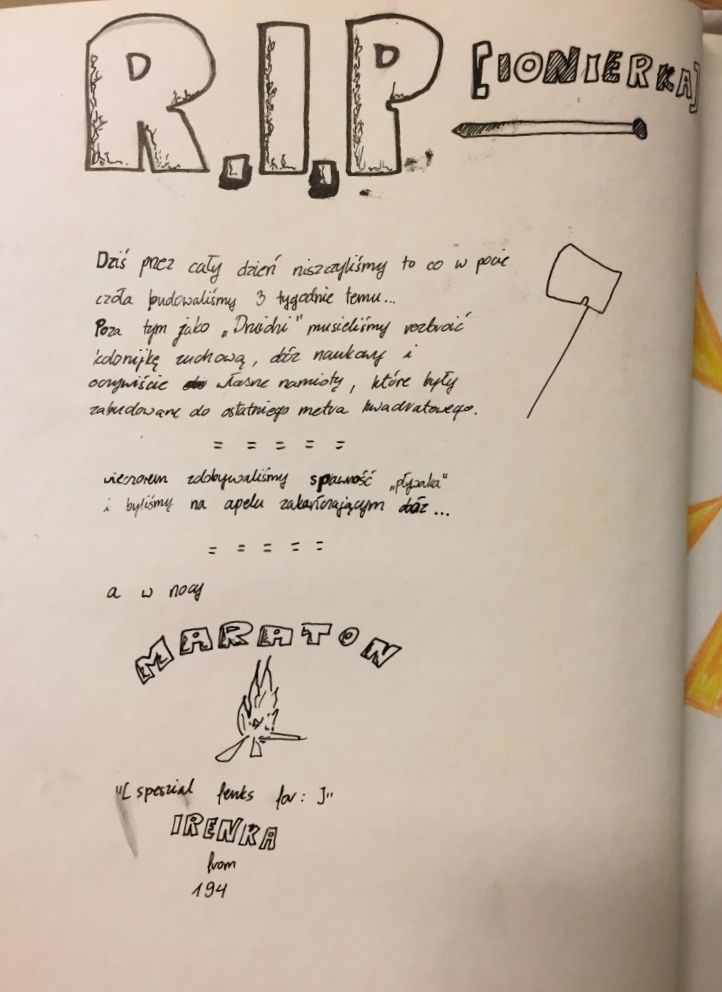 R.I.P [IONIERKA]
Dziś przez cały dzień niszczyliśmy to co w pocie
czoła budowaliśmy 3 tygodnie temu...
Poza tym jako „Druidzi" musieliśmy rozbroić
kolonijkę zuchową, obóz naukowy i
oczywiście własne namioty, które były
zabudowane do ostatniego metra kwadratowego.
= = = = =
wieczorem zdobywaliśmy sprawność „pływaka"
i byliśmy na apelu zakańczającym obóz...
= = = = =
a w nocy
MARATON
"[ speszial fenks for: ]"
IRENKA
from
194